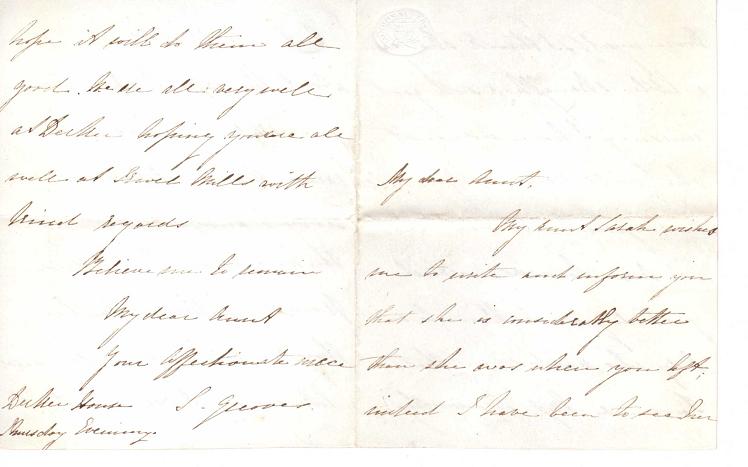 My dear Aunt.
My Aunt Sarah wished
me to write and inform you
that she is considerably better
than she was when you left;
indeed I have been to see her
hope it will do them all
good. We are all very well
at hoping you are all
well at Mills with
kind regards
Believe me to remain
My dear Aunt
Your affectionate niece
S. Groves.
House
Thursday Evening.